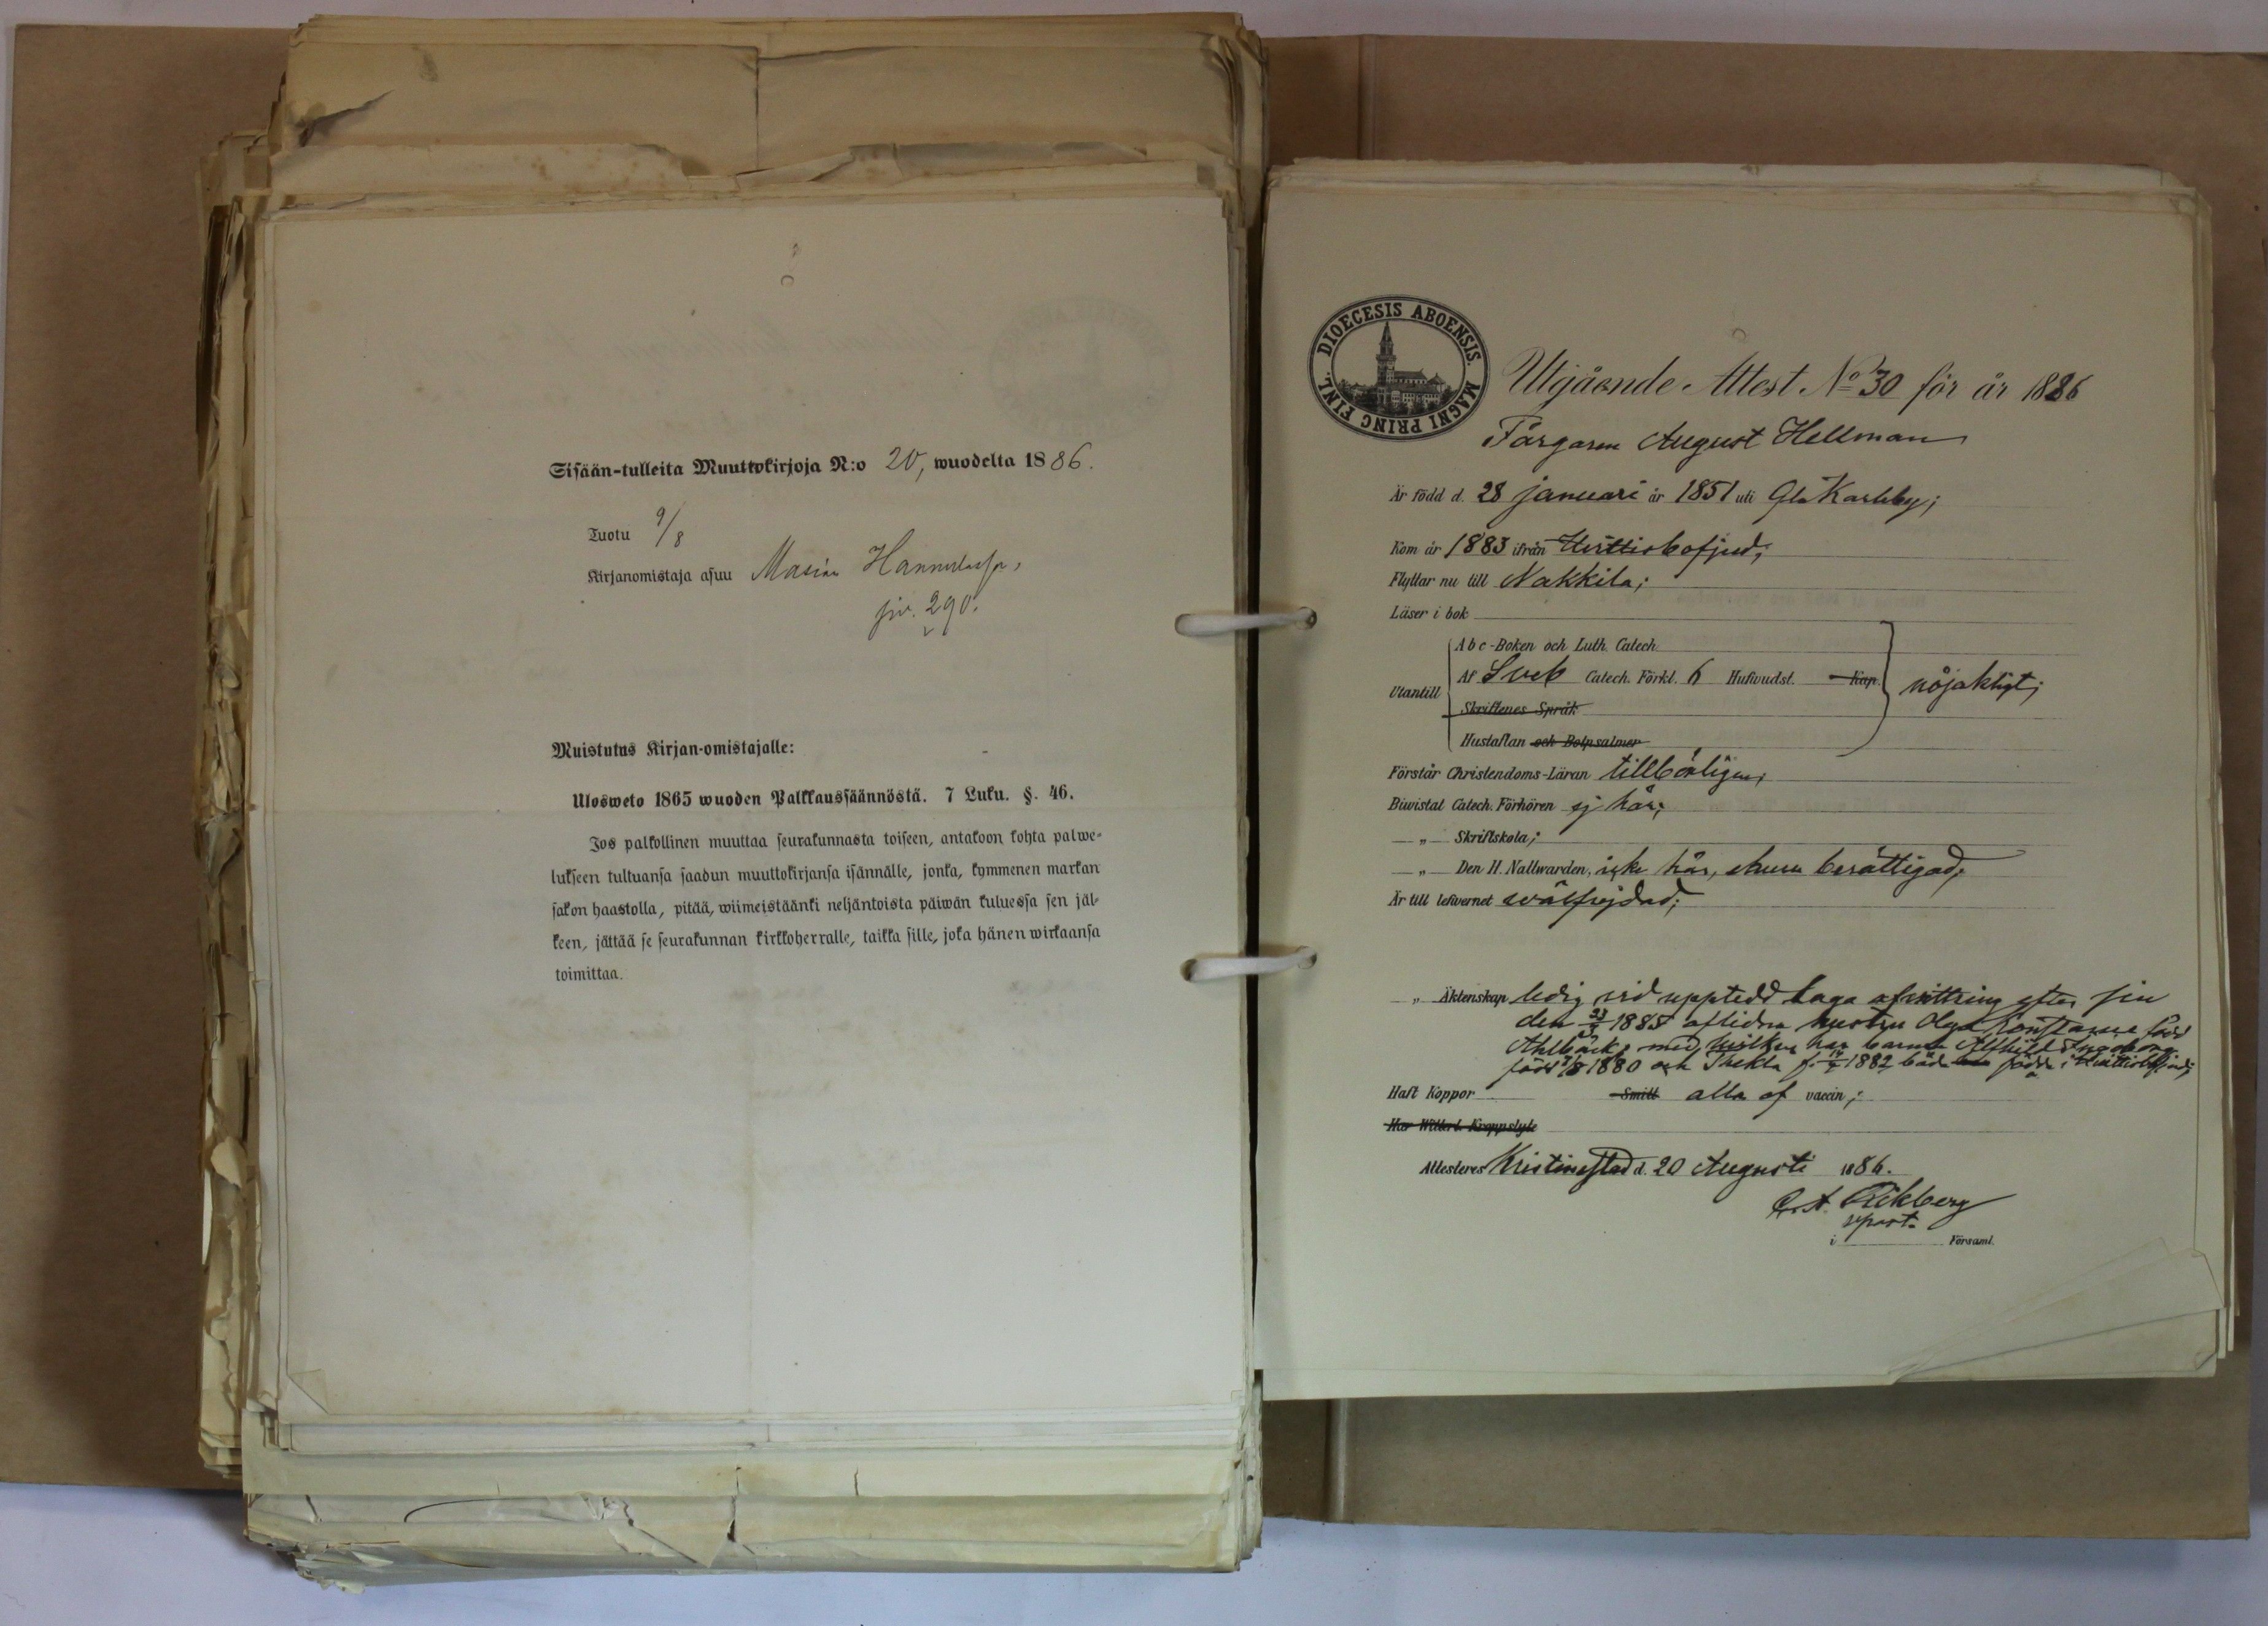 Sisään-tulleita Muuttokirjoja N:o 20, wuodelta 1886.
Tuotu 9/8
Kirjanomistaja asuu Masian Hannulassa,
siv. 290.
Muistutus Kirjan-omistajalle:
Ulosweto 1865 wuoden Palkkaussäännöstä. 7 Luku. §. 46.
Jos palkollinen muuttaa seurakunnasta toiseen, antakoon kohta palwe-
lukseen tultuansa saadun muuttokirjansa isännälle, jonka, kymmenen markan
sakon haastolla, pitää, wiimeistäänki neljäntoista päiwän kuluessa sen jäl-
keen, jättää se seurakunnan kirkkoherralle, taikka sille, joka hänen wirkaansa
toimittaa.
DIOECESIS ABOENSIS. MAGNI PRINC FINL.
Utgående Attest No 30 för år 1886
Färgaren August Hellman
Är född d. 28 januari år 1851 uti Gla Karleby;
Kom år 1883 ifrån
Flyttar nu till Nakkila;
Läser i bok
Utantill
Abc-Boken och Luth. Catech.
Af Sveb Catech. Förkl. 6 Hufwudst. Kap.
Skriftenes Språk
Hustaflan och Botpsalmer
nöjaktigt;
Förstår Christendoms-Läran tillbörligen,
Biwistat Catech. Förhören ej här;
—„— Skriftskola;
—„— Den H. Nattwarden, icke här, ehuru berättigad;
Är till lefwernet wälfrejdad;
—„— Äktenskap ledig vid upptedd laga afvittring efter sin
den 23/3 1885 aflidna hustru Olga Konstance född
Ahlbäck, med hvilken har barnen Alfhild Ingeborg
född 1880 och Thekla f. 1882 båda födda i
Haft Koppor Smitt alla af vaccin;
Har Witterl. Kroppslyte
Attesteres Kristinestad d. 20 Augusti 1886.
i Församl.